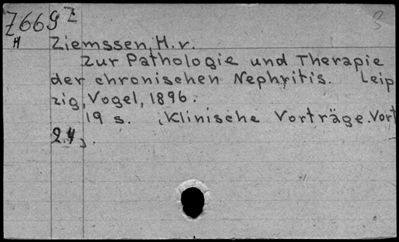 Z669 Z
H
Ziemssen, H. v.
Zur Pathologie und Therapie
der chronischen Nephritis. Leip
zig, Vogel, 1896.
19 s. (Klinische Vorträge. Vort
2.4).